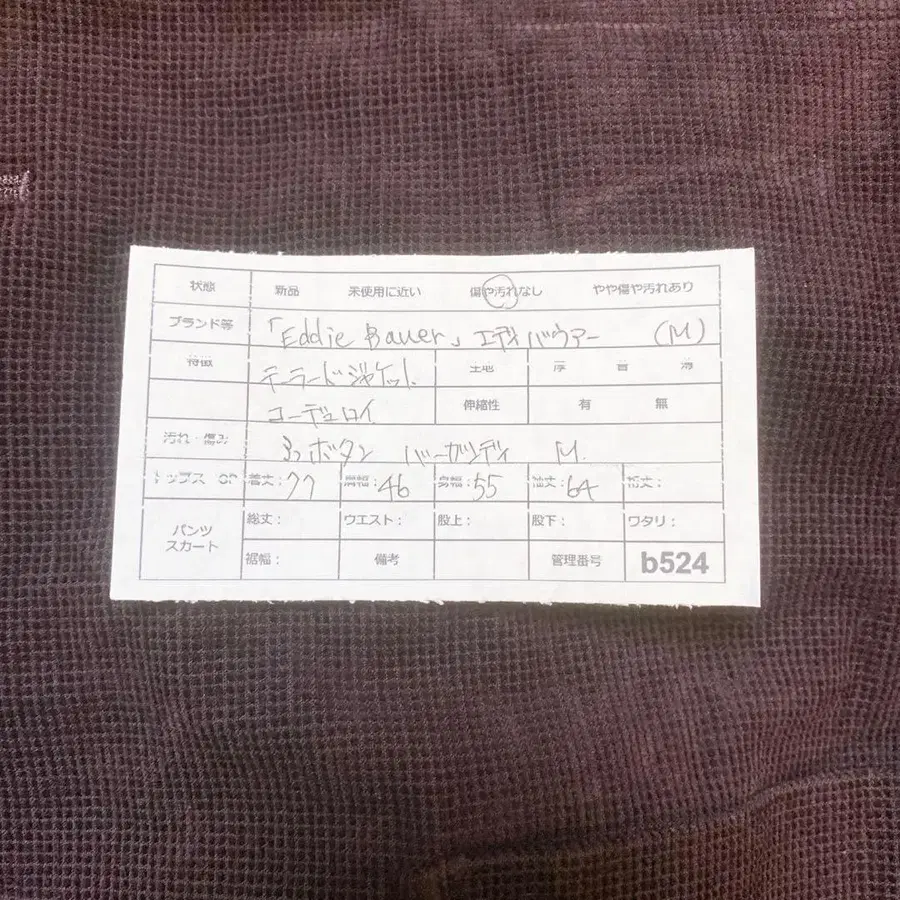 状態 新品 未使用に近い 傷や汚れなし やや傷や汚れあり
ブランド等 「Eddie Bauer」エディバウアー (M)
特徴 テーラードジャケット 生地 厚 普 薄
コーデュロイ 伸縮性 有 無
汚れ・傷み 3つボタン バーガンディ M
トップス OP 着丈:77 肩幅:46 身幅:55 袖丈:64 裄丈:
パンツ スカート 総丈: ウエスト: 股上: 股下: ワタリ:
裾幅: 備考 管理番号 b524